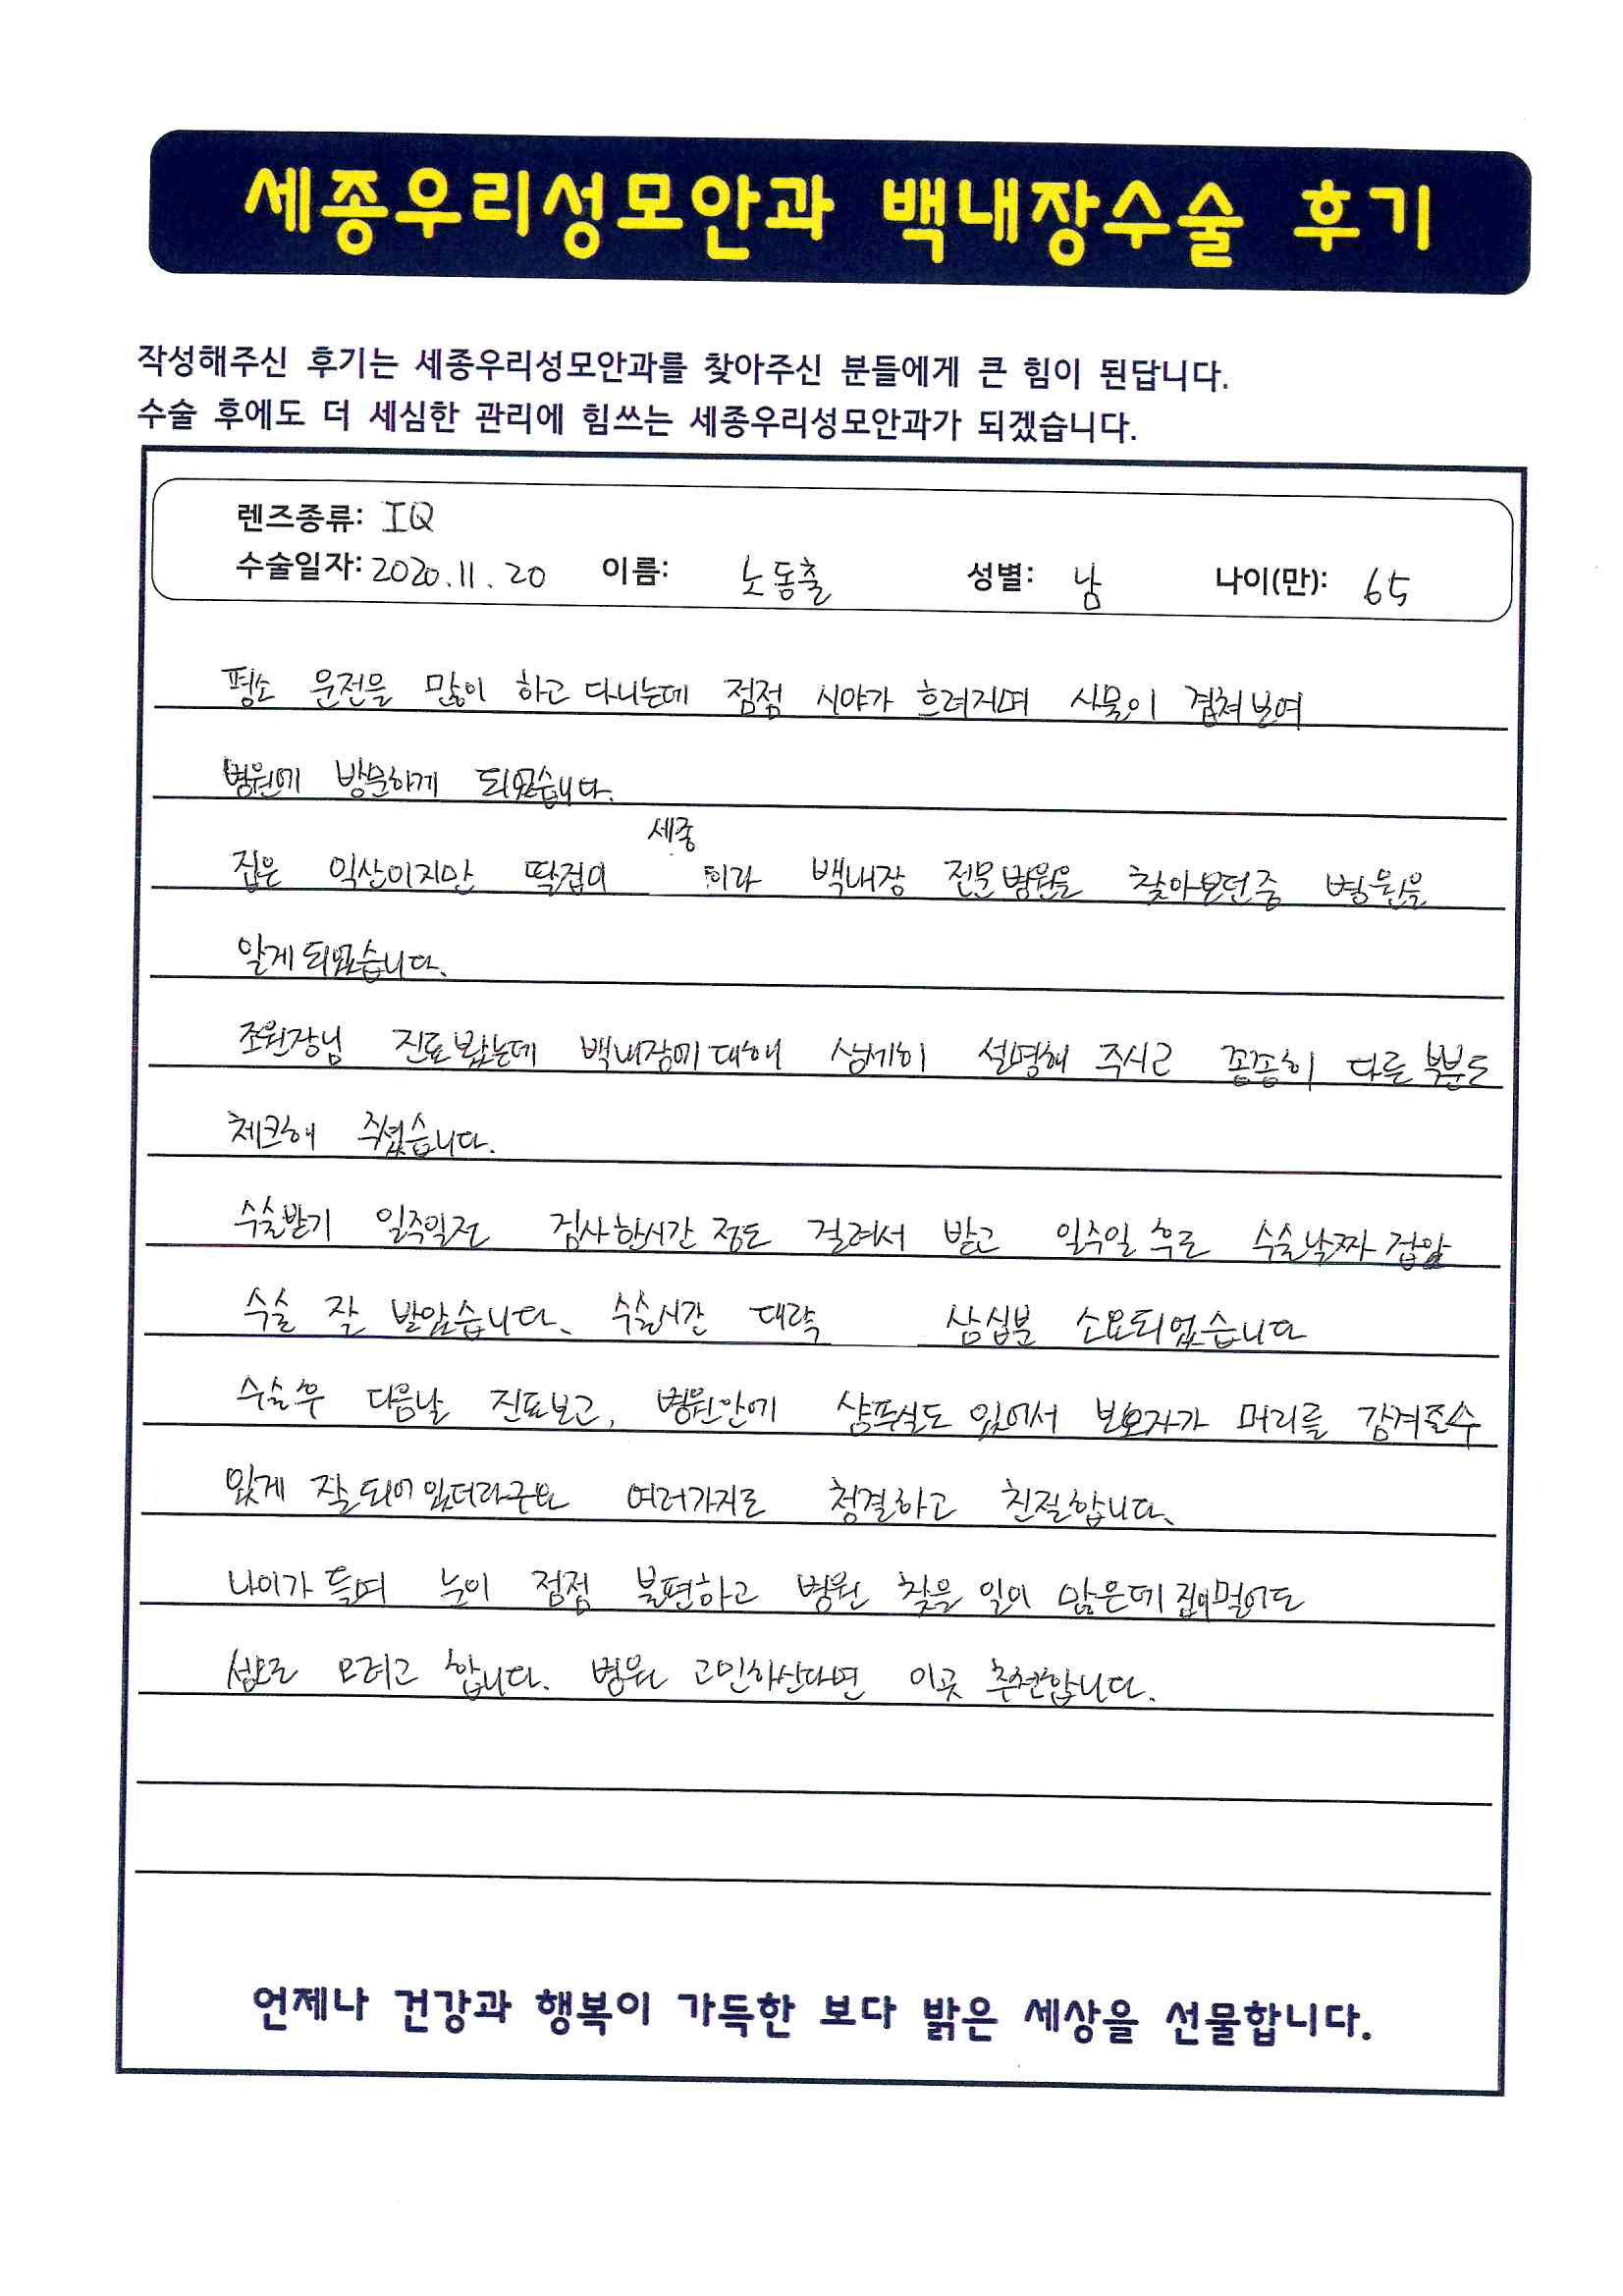 세종우리성모안과 백내장수술 후기
작성해주신 후기는 세종우리성모안과를 찾아주신 분들에게 큰 힘이 된답니다.
수술 후에도 더 세심한 관리에 힘쓰는 세종우리성모안과가 되겠습니다.
렌즈종류: IQ
수술일자: 2020.11.20 이름: 노동출 성별: 남 나이(만): 65
평소 운전을 많이 하고 다니는데 점점 시야가 흐려지며 사물이 겹쳐보여
병원에 방문하게 되었습니다.
세종
집은 익산이지만 딸집이 이라 백내장 전문병원을 찾아보던중 병원을
알게되었습니다.
조원장님 진료봤는데 백내장에대해 상세히 설명해 주시고 꼼꼼히 다른부분도
체크해 주셨습니다.
수술받기 일주일전 검사한시간 정도 걸려서 받고 일주일 후로 수술날짜 잡아
수술 잘 받았습니다. 수술시간 대략 삼십분 소요되었습니다
수술후 다음날 진료보고, 병원안에 샴푸실도 있어서 보호자가 머리를 감겨줄수
있게 잘되어있더라구요 여러가지로 청결하고 친절합니다.
나이가 들며 눈이 점점 불편하고 병원 찾을 일이 많은데 집이멀어도
성모로 오려고 합니다. 병원 고민하신다면 이곳 추천합니다.
언제나 건강과 행복이 가득한 보다 밝은 세상을 선물합니다.